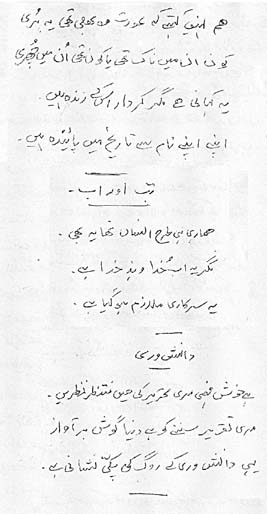 ہم انہیں کہتے کہ عورت وہ بھی تھی یہ بُری
کون ان میں ناک تھی یا کون تھی اُن میں چُھری
یہ کہانی ہے مگر کردار اس کے زندہ ہیں۔
اپنے اپنے نام سے تاریخ میں پائندہ ہیں۔
تب اور اب۔
ہماری ہی طرح انساں تھا یہ بھی۔
مگر یہ اب خُدا وندِ خدا ہے۔
یہ سرکاری ملازم ہو گیا ہے۔
دانش وری
ہے خوش فہمی مری تحریر کی ہیں منتظر نظریں۔
مری تقریر سننے کو ہے دنیا گوش بر آواز
یہی دانش وری کے روگ کی پکّی نشانی ہے۔